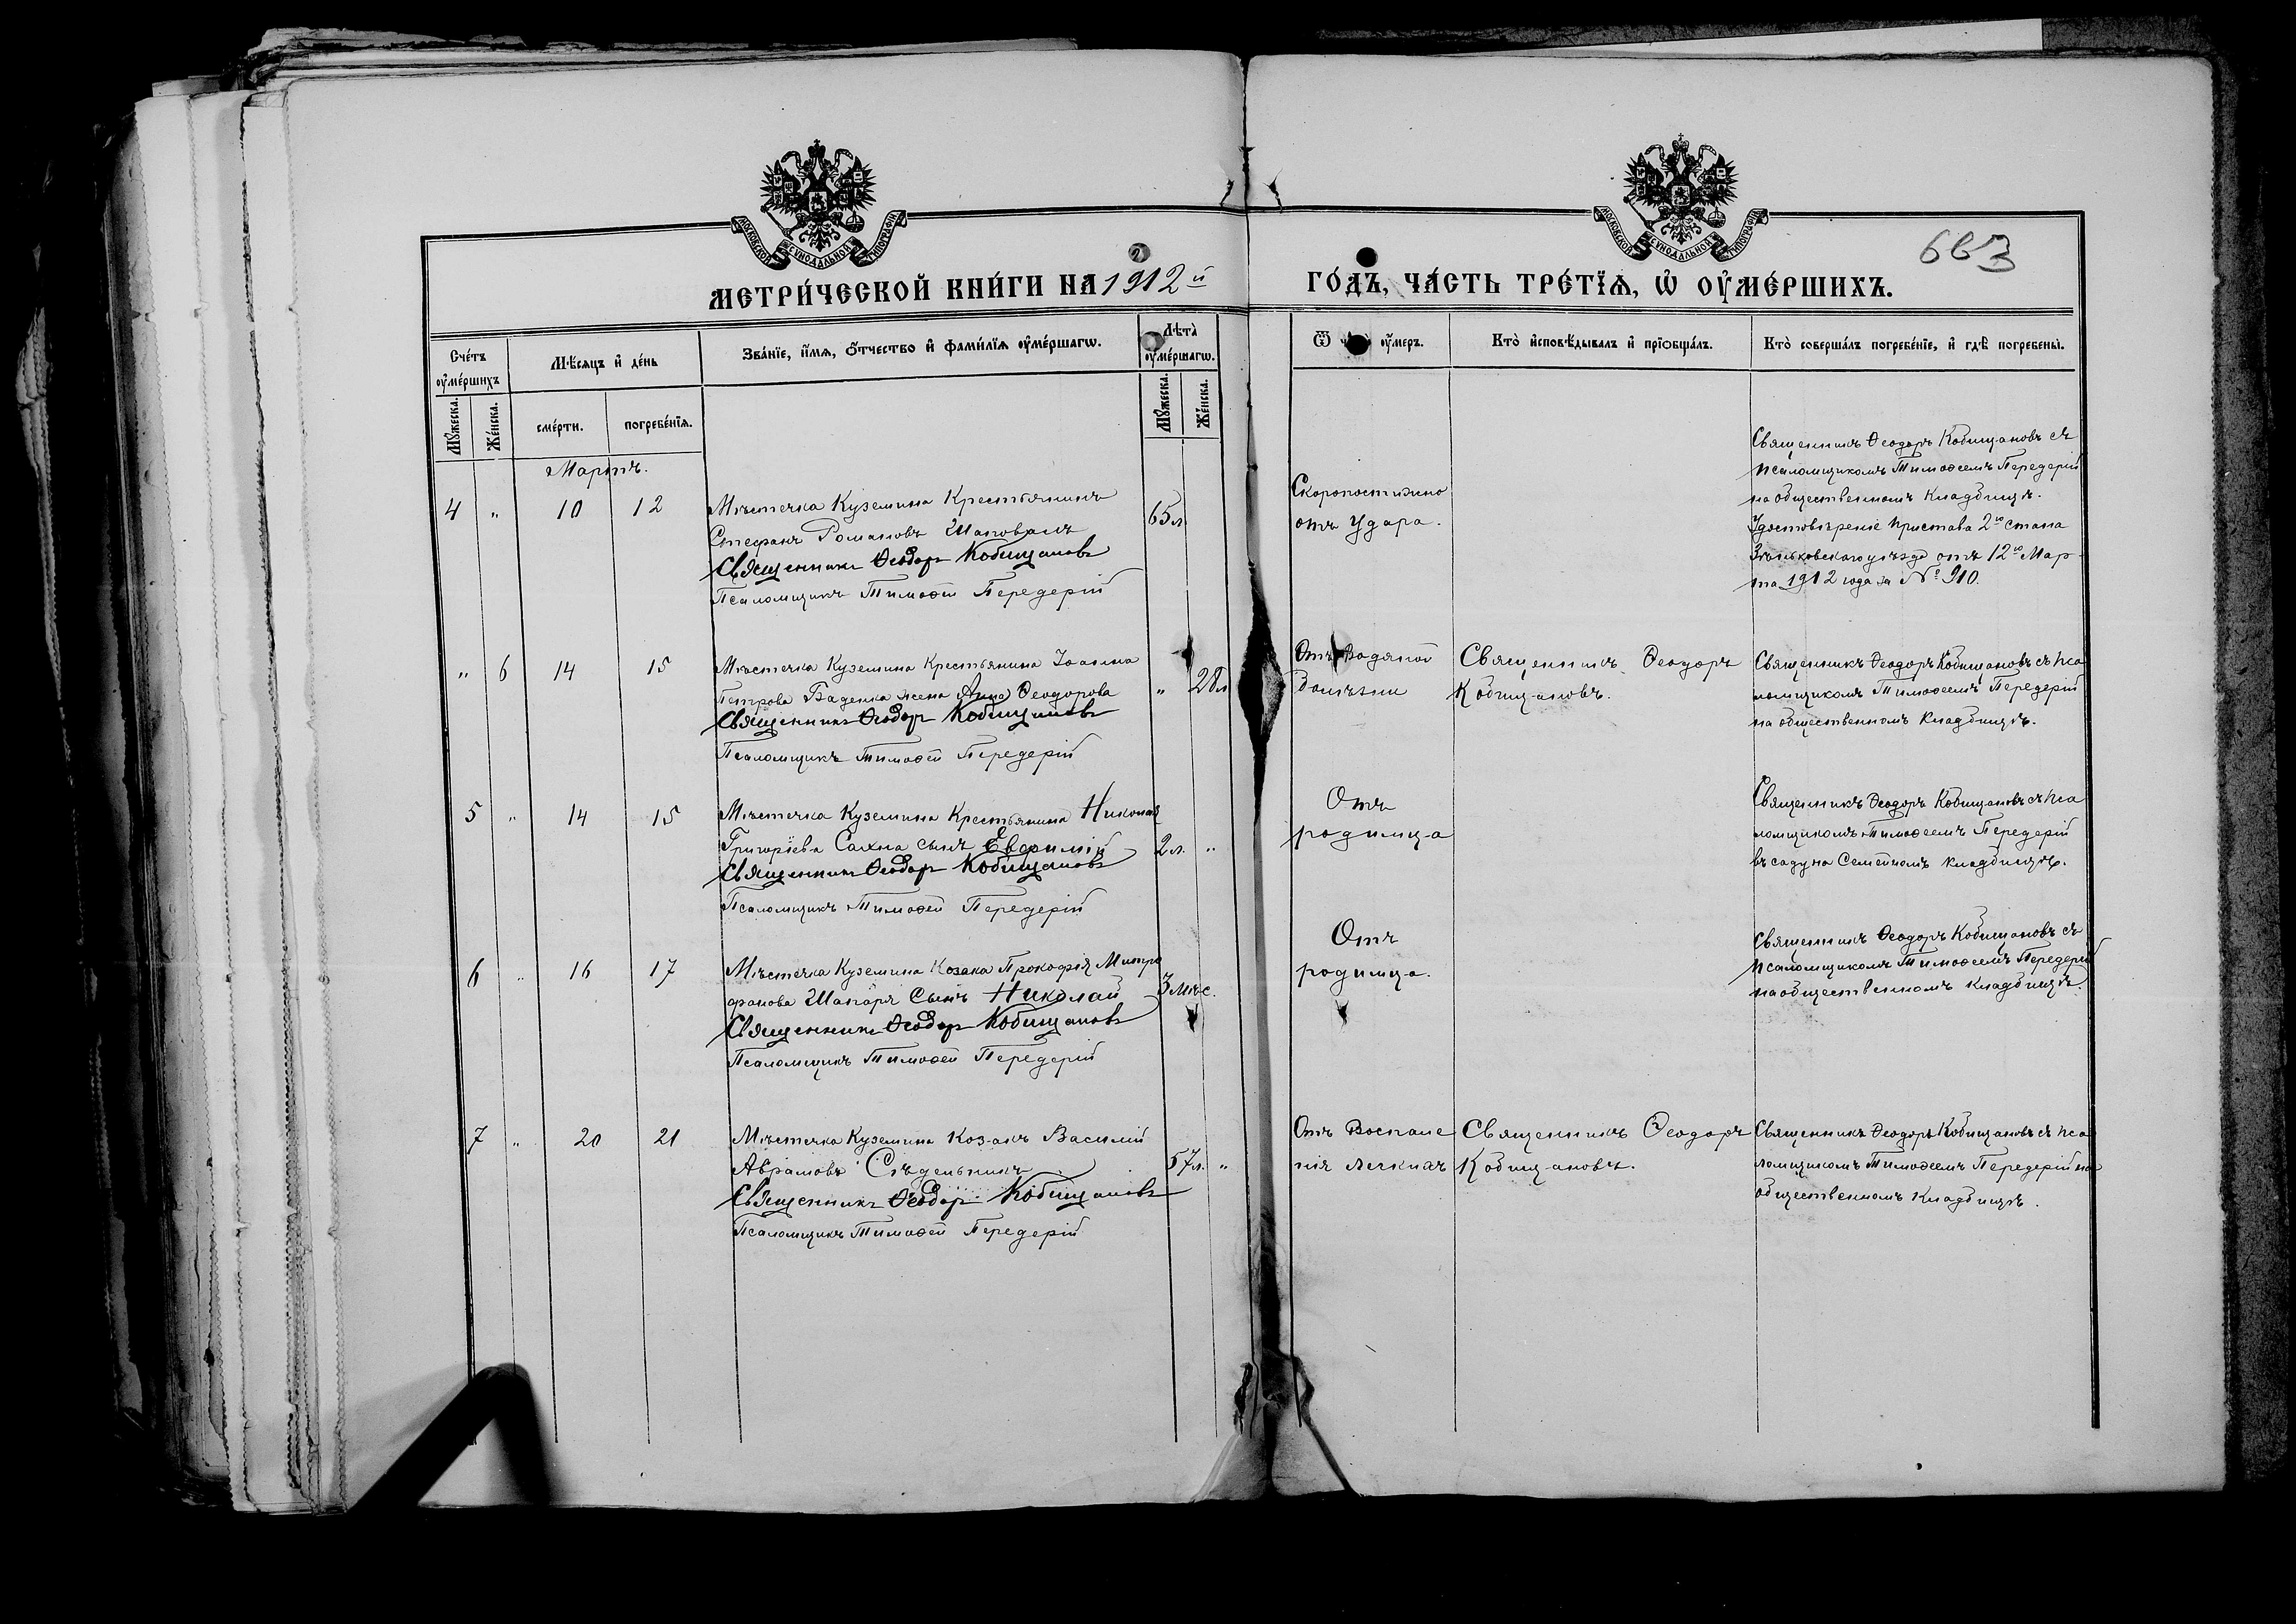 МОСКОВСКОЙ СѴНОДАЛЬНОЙ ТИПОГРАФІИ
МОСКОВСКОЙ СѴНОДАЛЬНОЙ ТИПОГРАФІИ
663
МЕТРИ́ЧЕСКОЙ КНИ́ГИ НА 1912й ГО́ДЪ, ЧА́СТЬ ТРЕ́ТЇѦ, Ѡ҆ ОУ҆МЕ́РШИХЪ.
Сче́тъ оу҆ме́ршихъ
Мѣ́сѧцъ и҆ де́нь
Зва́нїе, и҆́мѧ, ѻ҆́тчество и҆ фами́лїѧ оу҆ме́ршагѡ.
Лѣта̀ оу҆ме́ршагѡ.
Ѿ оу҆́меръ.
Кто̀ и҆сповѣ́дывалъ и҆ прїѡбща́лъ.
Кто̀ соверша́лъ погребе́нїе, и҆ гдѣ̀ погребены̀.
Мꙋ́жеска.
Же́нска.
сме́рти.
погребе́нїѧ.
Мꙋ́жеска.
Же́нска.
Мартъ.
4 " 10 12
Мѣстечка Куземина Крестьянинъ
Стефанъ Романовъ Шаповалъ
Священникъ Ѳеодоръ Кобищановъ
Псаломщикъ Тимоѳей Передерій
65 л.
Скоропостижно
отъ удара.
Священникъ Ѳеодоръ Кобищановъ съ
псаломщикомъ Тимоѳеемъ Передерій
на общественномъ кладбищѣ.
Удостовѣреніе пристава 2го стана
Зѣньковскаго уѣзда отъ 12го Мар-
та 1912 года за № 910.
" 6 14 15
Мѣстечка Куземина Крестьянина Іоанна
Петрова Баденка жена Анна Ѳеодорова
Священникъ Ѳеодоръ Кобищановъ
Псаломщикъ Тимоѳей Передерій
" 28 л
Отъ водяной
болѣзни
Священникъ Ѳеодоръ
Кобищановъ.
Священникъ Ѳеодоръ Кобищановъ съ пса
ломщикомъ Тимоѳеемъ Передерій
на общественномъ кладбищѣ.
5 " 14 15
Мѣстечка Куземина Крестьянина Николая
Григоріева Сахна сынъ Евфимій
Священникъ Ѳеодоръ Кобищановъ
Псаломщикъ Тимоѳей Передерій
2 л. "
Отъ
родимца
Священникъ Ѳеодоръ Кобищановъ съ пса
ломщикомъ Тимоѳеемъ Передерій
въ саду на Семейномъ кладбищѣ.
6 " 16 17
Мѣстечка Куземина Козака Прокофія Митро
фанова Шапаря сынъ Николай
Священникъ Ѳеодоръ Кобищановъ
Псаломщикъ Тимоѳей Передерій
3 мѣс.
Отъ
родимца.
Священникъ Ѳеодоръ Кобищановъ съ
псаломщикомъ Тимоѳеемъ Передерій
на общественномъ кладбищѣ.
7 " 20 21
Мѣстечка Куземина Козакъ Василій
Аврамовъ Слѣдельникъ
Священникъ Ѳеодоръ Кобищановъ
Псаломщикъ Тимоѳей Передерій
57 л. "
Отъ воспале
нія легкихъ
Священникъ Ѳеодоръ
Кобищановъ.
Священникъ Ѳеодоръ Кобищановъ съ пса
ломщикомъ Тимоѳеемъ Передерій на
общественномъ кладбищѣ.